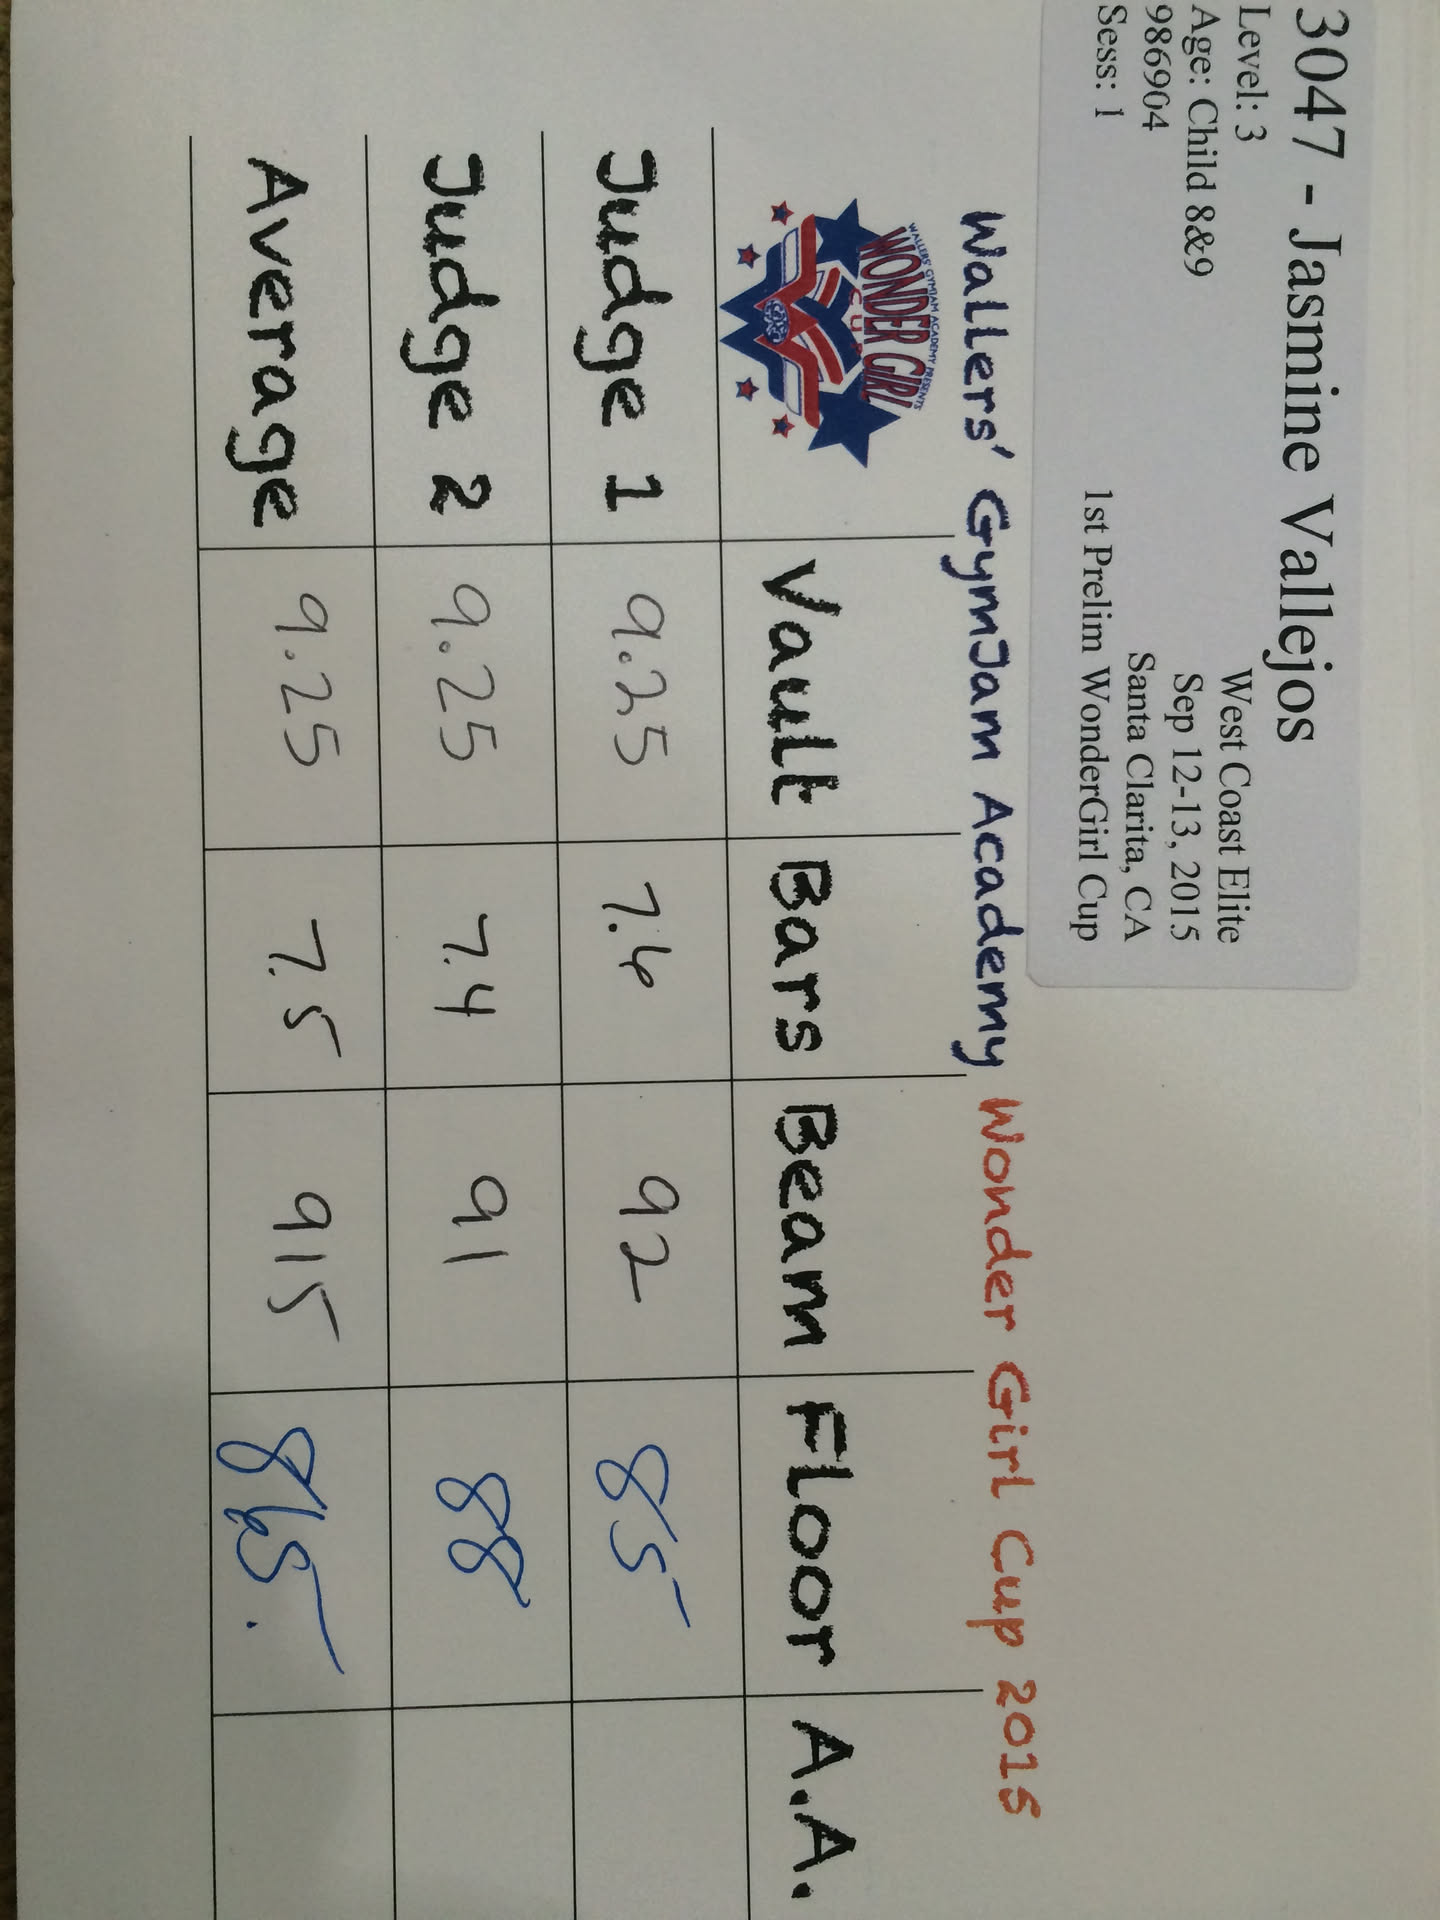 3047 - Jasmine Vallejos
Level: 3 West Coast Elite
Age: Child 8&9 Sep 12-13, 2015
986904 Santa Clarita, CA
Sess: 1 1st Prelim WonderGirl Cup
Wallers' GymJam Academy Wonder Girl Cup 2015
WALLERS' GYMJAM ACADEMY PRESENTS
WONDER GIRL
CUP
Vault Bars Beam Floor A.A.
Judge 1 9.25 7.6 92 85
Judge 2 9.25 7.4 91 88
Average 9.25 7.5 915 865.